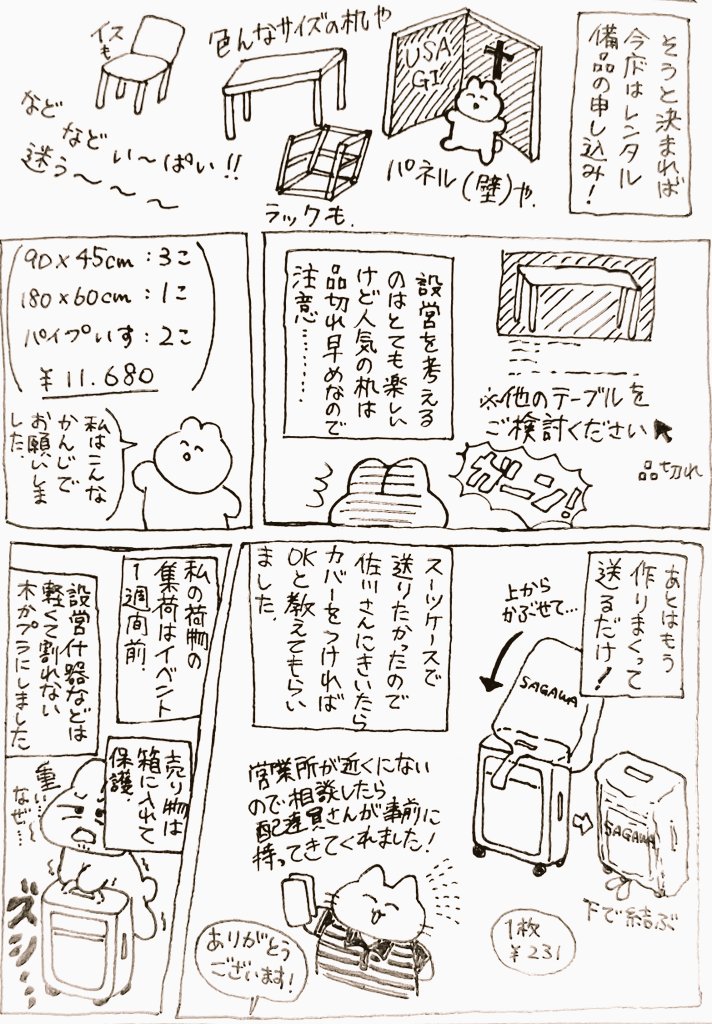 そうと決まれば
今度はレンタル
備品の申し込み!
USA
GI
パネル(壁)や、
色んなサイズの机や
イス
も
ラックも、
など
など
い〜ぱい!!
迷う〜〜〜〜
※他のテーブルを
ご検討ください
品切れ
設営を考える
のはとても楽しい
けど人気の机は
品切れ早めなので
注意………
ガーン!
90×45cm:3コ
180×60cm:1コ
パイプいす:2コ
¥11.680
私はこんな
かんじで
お願いしま
した。
あとはもう
作りまくって
送るだけ!
上から
かぶせて…
SAGAWA
SAGAWA
下で結ぶ
1枚
¥231
スーツケースで
送りたかったので
佐川さんにきいたら
カバーをつければ
OKと教えてもらい
ました。
営業所が近くにない
ので相談したら
配達員さんが事前に
持ってきてくれました!
ありがとう
ございます!
私の荷物の
集荷はイベント
1週間前。
売り物は
箱に入れて
保護。
設営什器などは
軽くて割れない
木かプラにしました
重い…
なぜ…
ズシ…